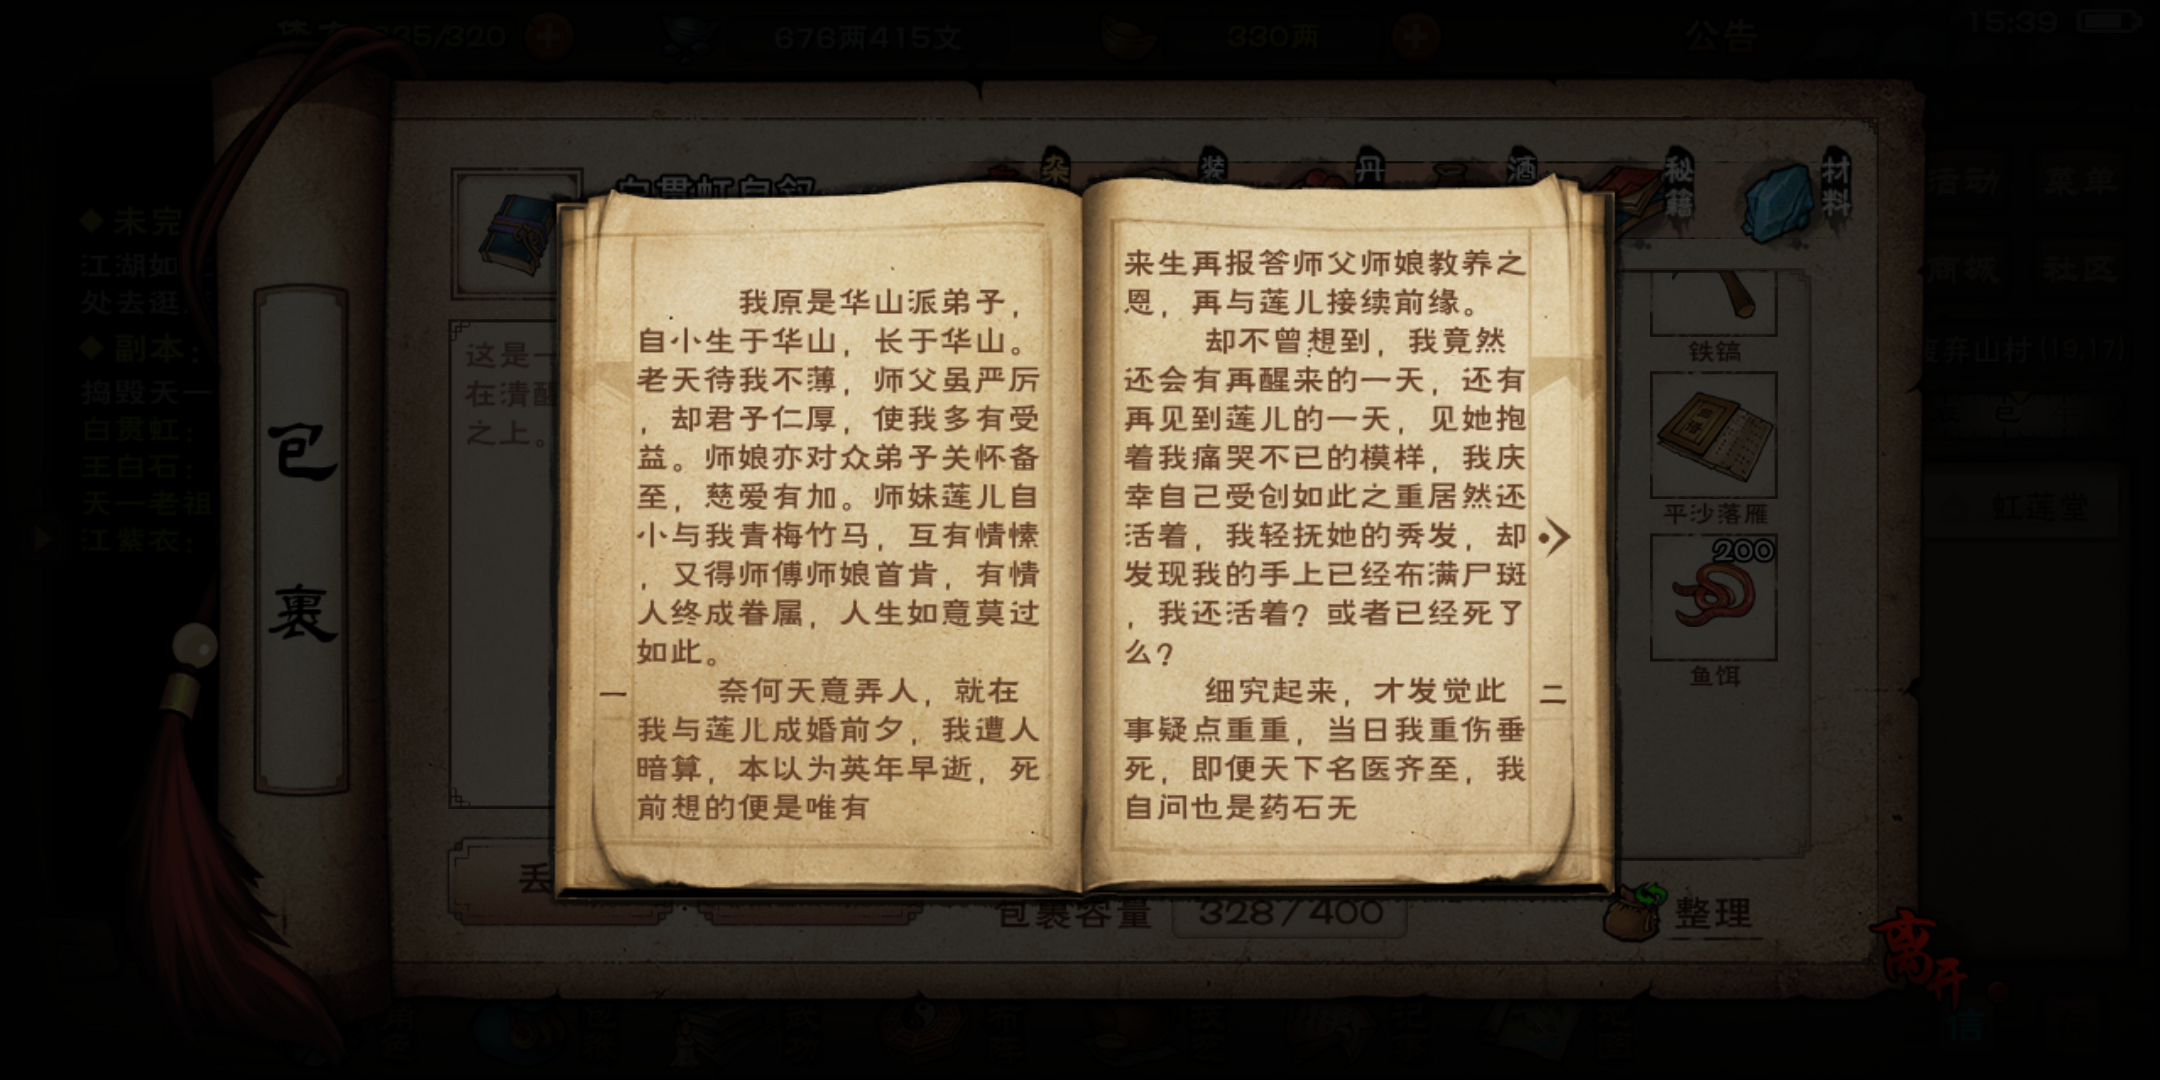 635/320
676两415文
330两
公告
15:39
白贯虹自叙
杂
装
丹
酒
秘籍
材料
活动
菜单
商城
社区
未完
江湖如
处去逛
副本：
捣毁天一
白贯虹：
王白石：
天一老祖
江紫衣：
包裹
这是一
在清醒
之上。
我原是华山派弟子，
自小生于华山，长于华山。
老天待我不薄，师父虽严厉
，却君子仁厚，使我多有受
益。师娘亦对众弟子关怀备
至，慈爱有加。师妹莲儿自
小与我青梅竹马，互有情愫
，又得师傅师娘首肯，有情
人终成眷属，人生如意莫过
如此。
奈何天意弄人，就在
我与莲儿成婚前夕，我遭人
暗算，本以为英年早逝，死
前想的便是唯有
一
来生再报答师父师娘教养之
恩，再与莲儿接续前缘。
却不曾想到，我竟然
还会有再醒来的一天，还有
再见到莲儿的一天，见她抱
着我痛哭不已的模样，我庆
幸自己受创如此之重居然还
活着，我轻抚她的秀发，却
发现我的手上已经布满尸斑
，我还活着？或者已经死了
么？
细究起来，才发觉此
事疑点重重，当日我重伤垂
死，即便天下名医齐至，我
自问也是药石无
二
铁镐
平沙落雁
200
鱼饵
废弃山村(19,17)
虹莲堂
丢
包裹容量
328/400
整理
离开
信